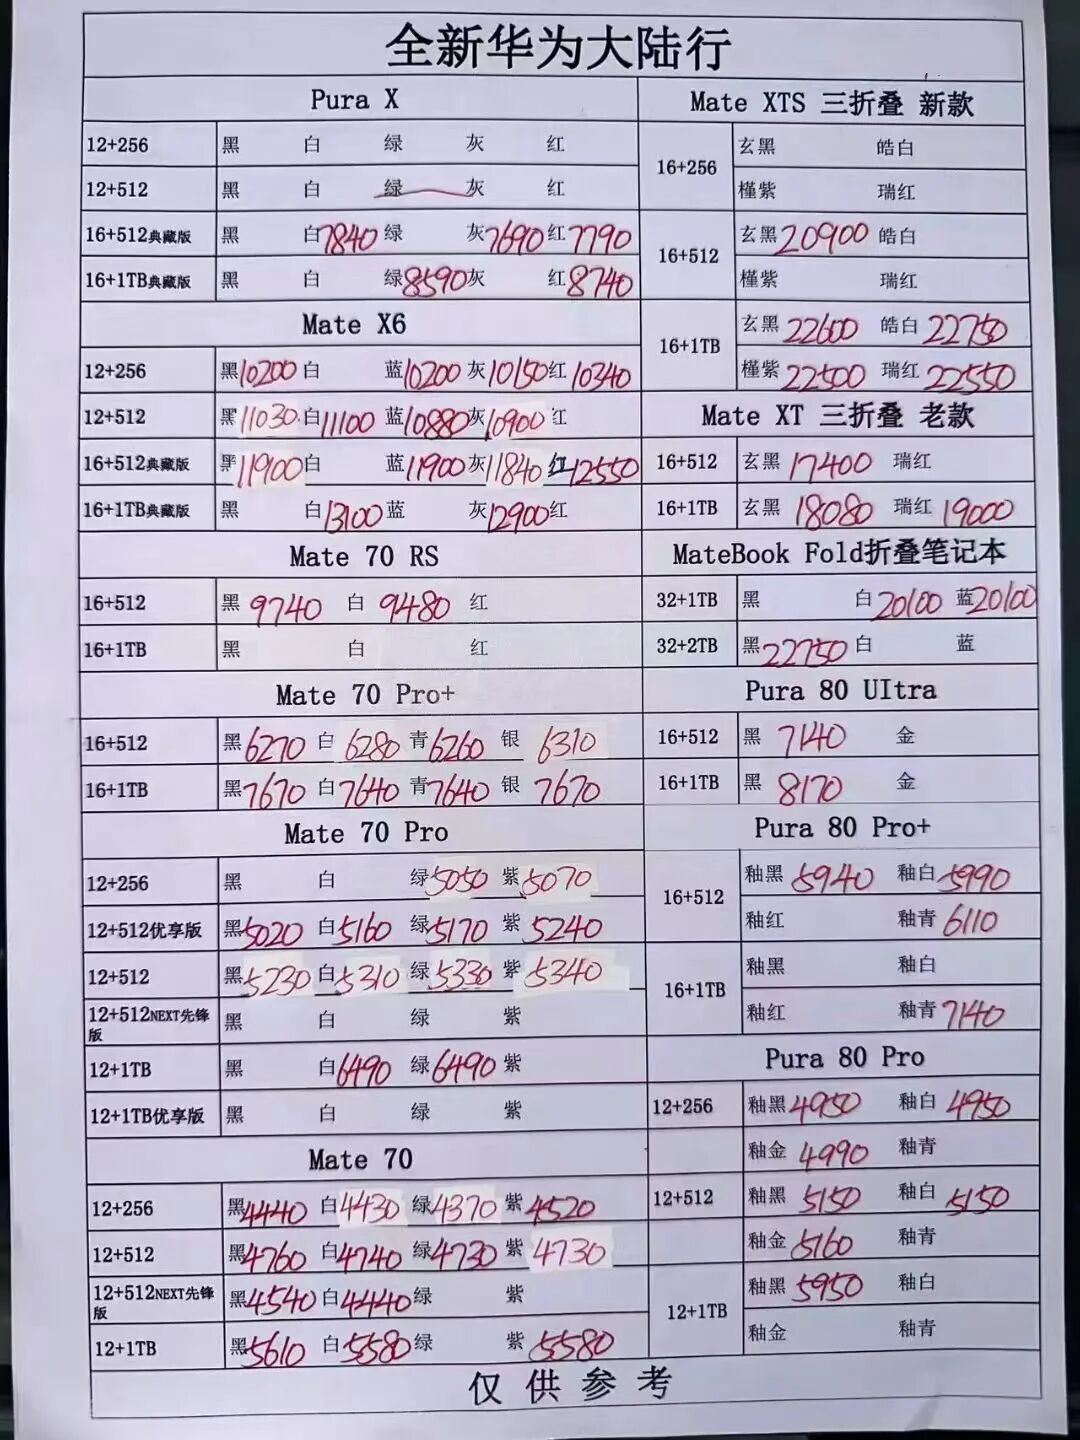 全新华为大陆行
Pura X
12+256 黑 白 绿 灰 红
12+512 黑 白 绿 灰 红
16+512典藏版 黑 白7840 绿 灰7690 红7790
16+1TB典藏版 黑 白 绿8590 灰 红8740
Mate X6
12+256 黑10200 白 蓝10200 灰10150 红10340
12+512 黑11030 白11100 蓝10880 灰10900 红
16+512典藏版 黑11900 白 蓝11900 灰11840 红12550
16+1TB典藏版 黑 白13100 蓝 灰12900 红
Mate 70 RS
16+512 黑9740 白9480 红
16+1TB 黑 白 红
Mate 70 Pro+
16+512 黑6270 白6280 青6260 银6310
16+1TB 黑7670 白7640 青7640 银7670
Mate 70 Pro
12+256 黑 白 绿5050 紫5070
12+512优享版 黑5020 白5160 绿5170 紫5240
12+512 黑5230 白5310 绿5330 紫5340
12+512NEXT先锋版 黑 白 绿 紫
12+1TB 黑 白6490 绿6490 紫
12+1TB优享版 黑 白 绿 紫
Mate 70
12+256 黑4440 白4430 绿4370 紫4520
12+512 黑4760 白4740 绿4730 紫4730
12+512NEXT先锋版 黑4540 白4440 绿 紫
12+1TB 黑5610 白5580 绿 紫5580
Mate XTS 三折叠 新款
16+256 玄黑 皓白
槿紫 瑞红
16+512 玄黑20900 皓白
槿紫 瑞红
16+1TB 玄黑22600 皓白22750
槿紫22500 瑞红22550
Mate XT 三折叠 老款
16+512 玄黑17400 瑞红
16+1TB 玄黑18080 瑞红19000
MateBook Fold折叠笔记本
32+1TB 黑 白20100 蓝20100
32+2TB 黑22750 白 蓝
Pura 80 UItra
16+512 黑7140 金
16+1TB 黑8170 金
Pura 80 Pro+
16+512 釉黑5940 釉白5990
釉红 釉青6110
16+1TB 釉黑 釉白
釉红 釉青7140
Pura 80 Pro
12+256 釉黑4950 釉白4950
釉金4990 釉青
12+512 釉黑5150 釉白5150
釉金5160 釉青
12+1TB 釉黑5950 釉白
釉金 釉青
仅供参考